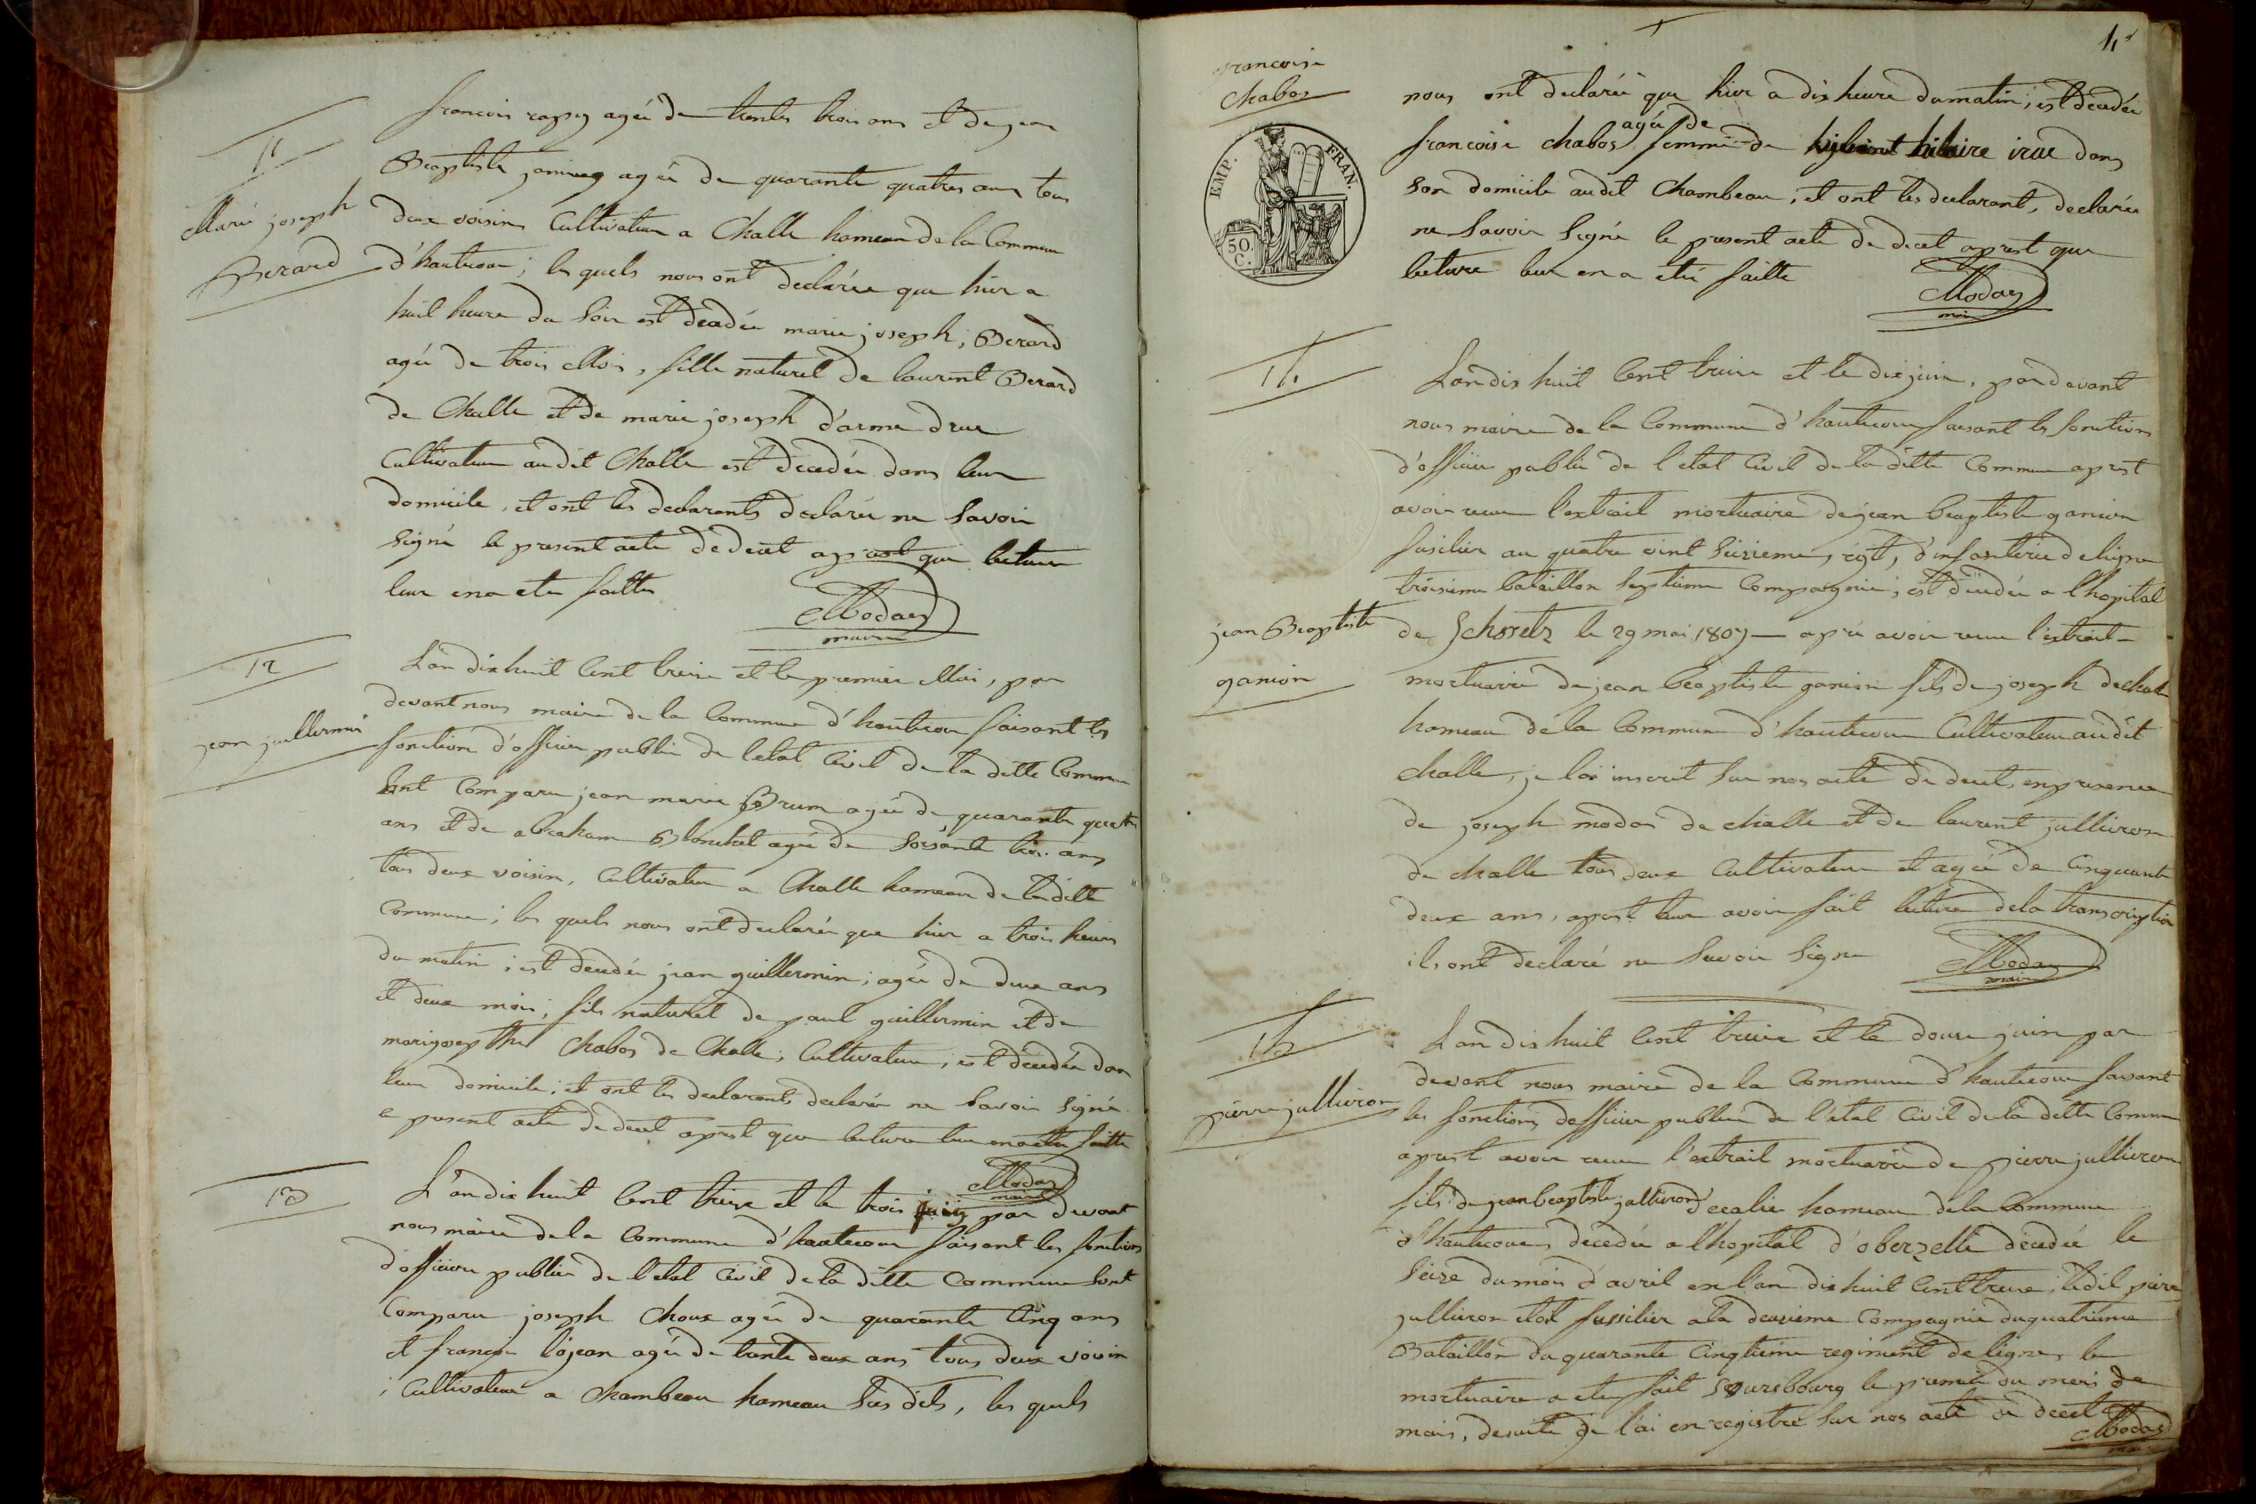 11
Marie joseph
Berard
françois rapey agée de trente trois ans et de jean
Beaptiste agée de quarante quatres ans tous
deux voisins Cultivateur a Challe hameau de la Commune
d'hautecour; les quels nous ont declarée que hier a
huit heure du Soir est décedée marie joseph; Berard
agée de trois Mois, fille naturel de laurent Berard
de Challe et de marie joseph d'arme
Cultivateur audit Challe est décedée dans leur
domicile, et ont les declarants declarée ne Savoir
Signé le present acte de decet aprest que lecture
leur en a eté faitte
Moday
maire
12
jean guillermin
L'an dixhuit Cent treise et le premier Mai, par
devant nous maire de la Commune d'hautecour faisant les
fonction d'officier publie de l'etat Civil de la ditte Commune
Sont Comparu jean marie Brun agée de quarante quatre
ans et de abraham Blanchet agée de Soisante trois ans
tous deux voisin, Cultivateur a Challe hameau de la ditte
Commune; les quels nous ont declarée que hier a trois heures
du matin; est décedée jean guillermin; agée de deux ans
et deux mois; fils naturel de paul guillermin et de
Chabos de Challe; Cultivateur, est décedée dans
leur domicile; et ont les declarants declarée ne Savoir Signé
le present acte de decet aprest que lecture leur en a eté faitte
Moday
maire
13
L'an dix huit Cent treize et le trois juin par devant
nous maire de la Commune d'hautecour faisant les fonctions
d'officier publie de l'etat Civil de la ditte Commune Sont
Comparu joseph Choux agée de quarante Cinq ans
et françois lojean agée de trente deux ans tous deux voisin
; Cultivateur a Chambeau hameau Sus dits, les quels
françoise
Chabos
EMP. FRAN.
50.
C.
nous ont declarée que hier a dix heure du matin; est décedée
françoise chabos agée de femme de hilaire dans
Son domicile audit Chambeau, et ont les declarant, declarée
ne Savoir Signé le present acte de decet aprest que
lecture leur en a eté faitte
Moday
maire
14
jean Beaptiste
ganion
L'an dix huit Cent treise et le dix juin, par devant
nous maire de la Commune d'hautecour faisant les fonctions
d'officier publie de l'etat Civil de la ditte Commune aprest
avoir recue l'extrait mortuaire de jean beaptiste ganion
fusilier au quatre vint Seisieme, rgt, d'infanterie de ligne
troisieme bataillon Septieme Compagnie; est décedée a l'hopital
de le 29 mai 1807 — aprée avoir recue l'extrait
mortuaire de jean beaptiste ganion fils de joseph de challe
hameau de la Commune d'hautecour Cultivateur audit
challe, je l'ai inscrit Sur nos acte de decet, en presence
de joseph modas de challe et de laurent jullieron
de challe tous deux Cultivateur et agée de Cinquante
deux ans, aprest leur avoir fait lecture de la transcription
ils ont declaré ne Savoir Signe
Moday
maire
15
pierre jullieron
L'an dix huit Cent treise et le douze juin par
devant nous maire de la Commune d'hautecour faisant
les fonctions d'officier publie de l'etat Civil de la ditte Commune
aprest avoir recue l'extrait mortuaire de pierre jullieron
fils de jean beaptiste jullieron hameau de la Commune
d'hautecour, décedée a l'hopital d'oberzelle décedée le
Seize du mois d'avril en l'an dix huit Cent treise, ledit pierre
jullieron etoit fussilier a la deusieme Compagnie du quatrieme
Bataillon du quarante Cinqtieme regiment de ligne, le
mortuaire a eté fait le premié du mois de
mais, desuite je l'ai enregistré Sur nos acte de decet
Moday
maire